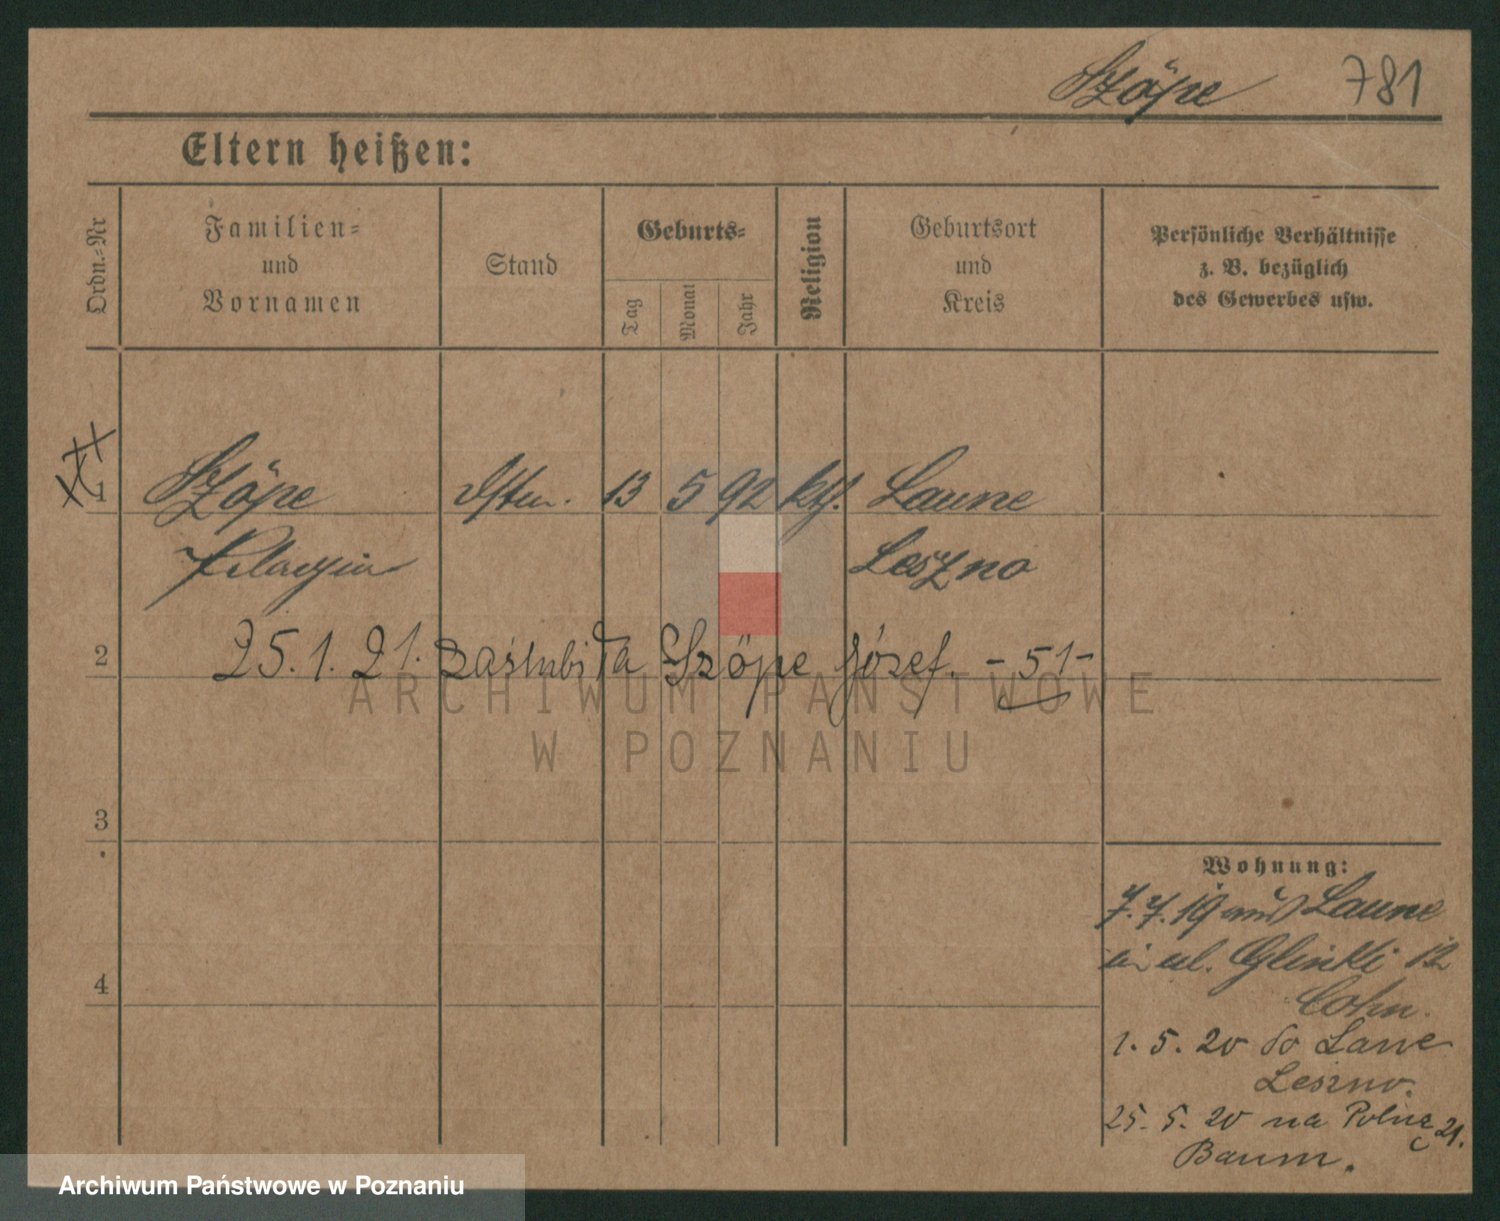 Szöpe 781
Eltern heißen:
Ordn.-Nr
Familien-
und
Vornamen
Stand
Geburts-
Tag
Monat
Jahr
Religion
Geburtsort
und
Kreis
Persönliche Verhältnisse
z. B. bezüglich
des Gewerbes usw.
1 Szöpe 13 5 92 kth. Laune
Pelagia Leszno
2 25.1.21. zaślubiła Szöpe Józef. - 51 -
ARCHIWUM PAŃSTWOWE
W POZNANIU
3
4
Wohnung:
7.7.19 aus Laune
ul. Glinki 12
Cohn.
1.5.20 do Laune
Leszno.
25.5.20 na 21.
Baum.
Archiwum Państwowe w Poznaniu